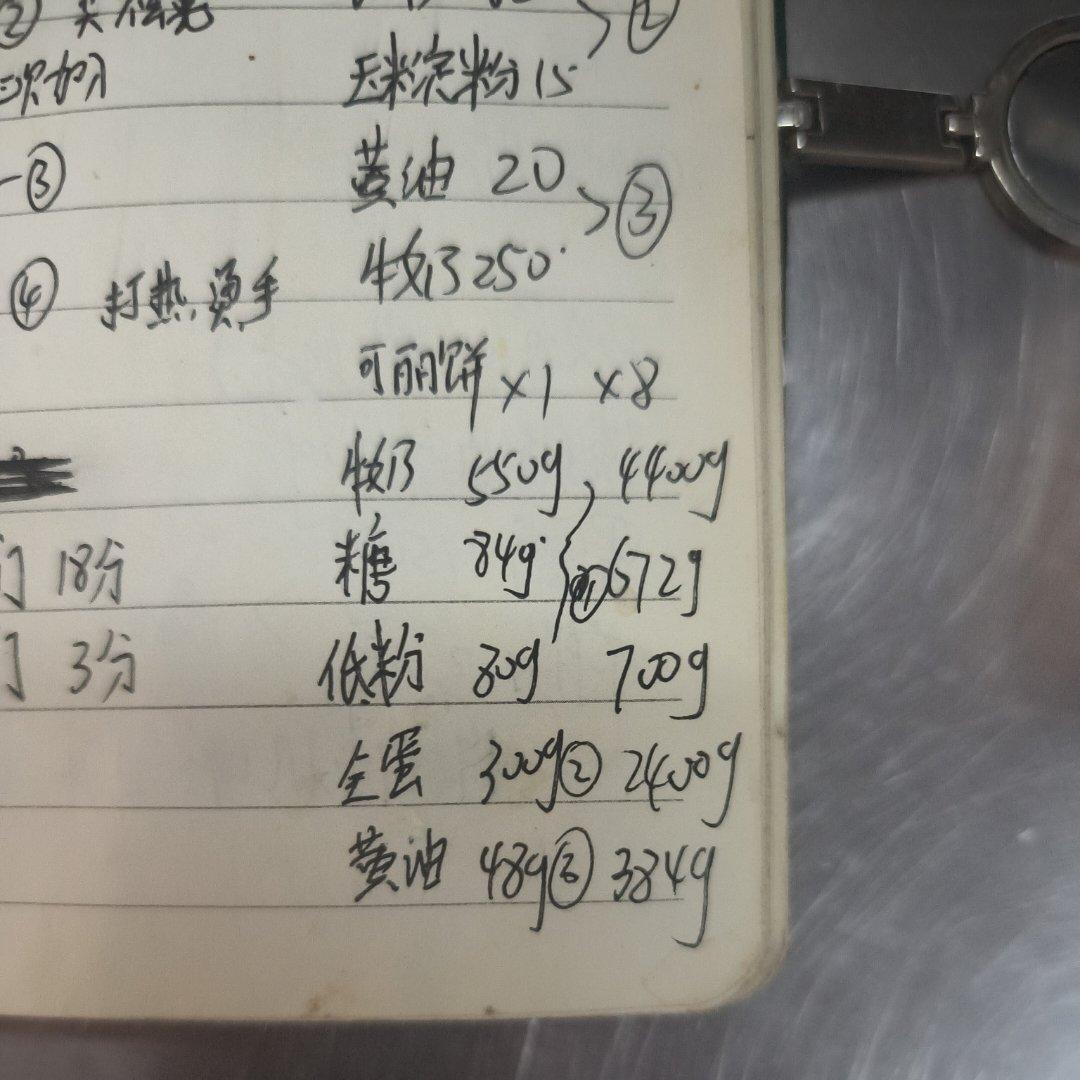 ② 关
次加入
玉米淀粉 15
③
黄油 20 > ③
牛奶 250
④ 打热 烫手
可丽饼 ×1 ×8
牛奶 550g 4400g
糖 84g ① 672g
18分
低粉 80g 700g
3分
全蛋 300g ② 2400g
黄油 48g ③ 384g